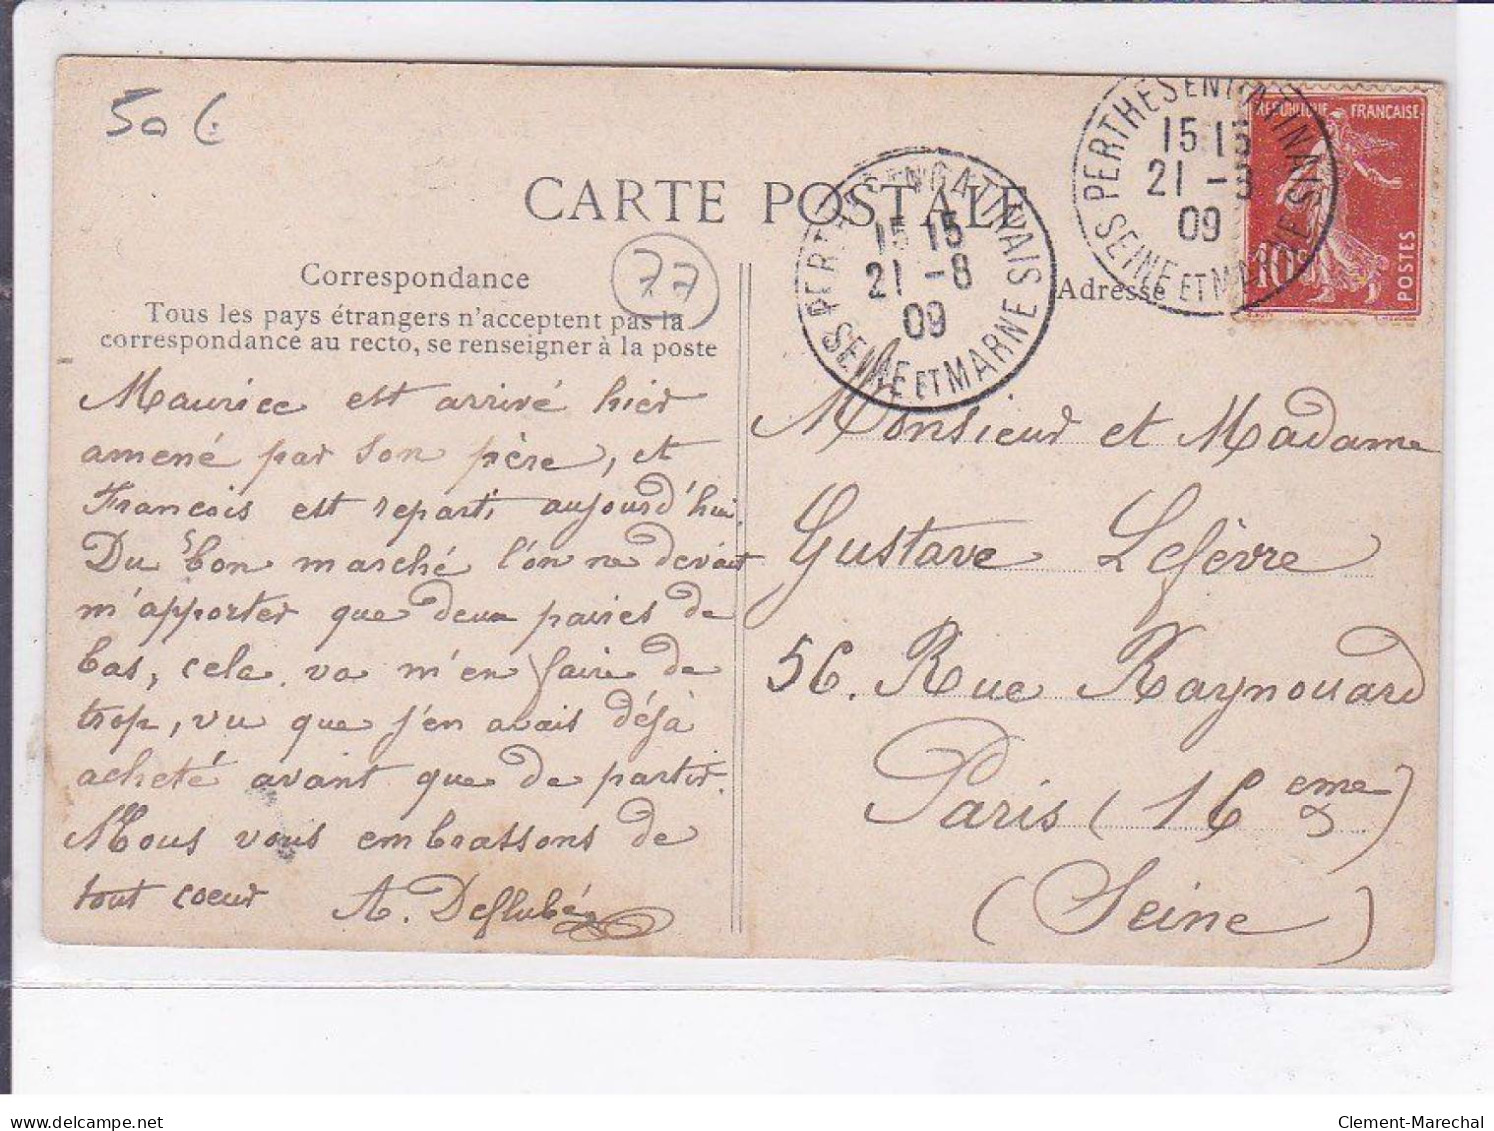 50 c
CARTE POSTALE
77
Correspondance
Tous les pays étrangers n'acceptent pas la
correspondance au recto, se renseigner à la poste
Maurice est arrivé hier
amené par son père, et
François est reparti aujourd'hui.
Du bon marché l'on ne devait
m'apporter que deux paires de
bas, cela va m'en faire de
trop, vu que j'en avais déjà
acheté avant que de partir.
Nous vous embrassons de
tout coeur A. Deflubé
PERTHES EN GATINAIS
15 15
21 - 8
09
SEINE ET MARNE
PERTHES EN GATINAIS
15 15
21 - 8
09
SEINE ET MARNE
REPUBLIQUE FRANÇAISE
10c
POSTES
Adresse
Monsieur et Madame
Gustave Lefèvre
56. Rue Raynouard
Paris (16eme)
(Seine)
delcampe.net
Clement-Marechal